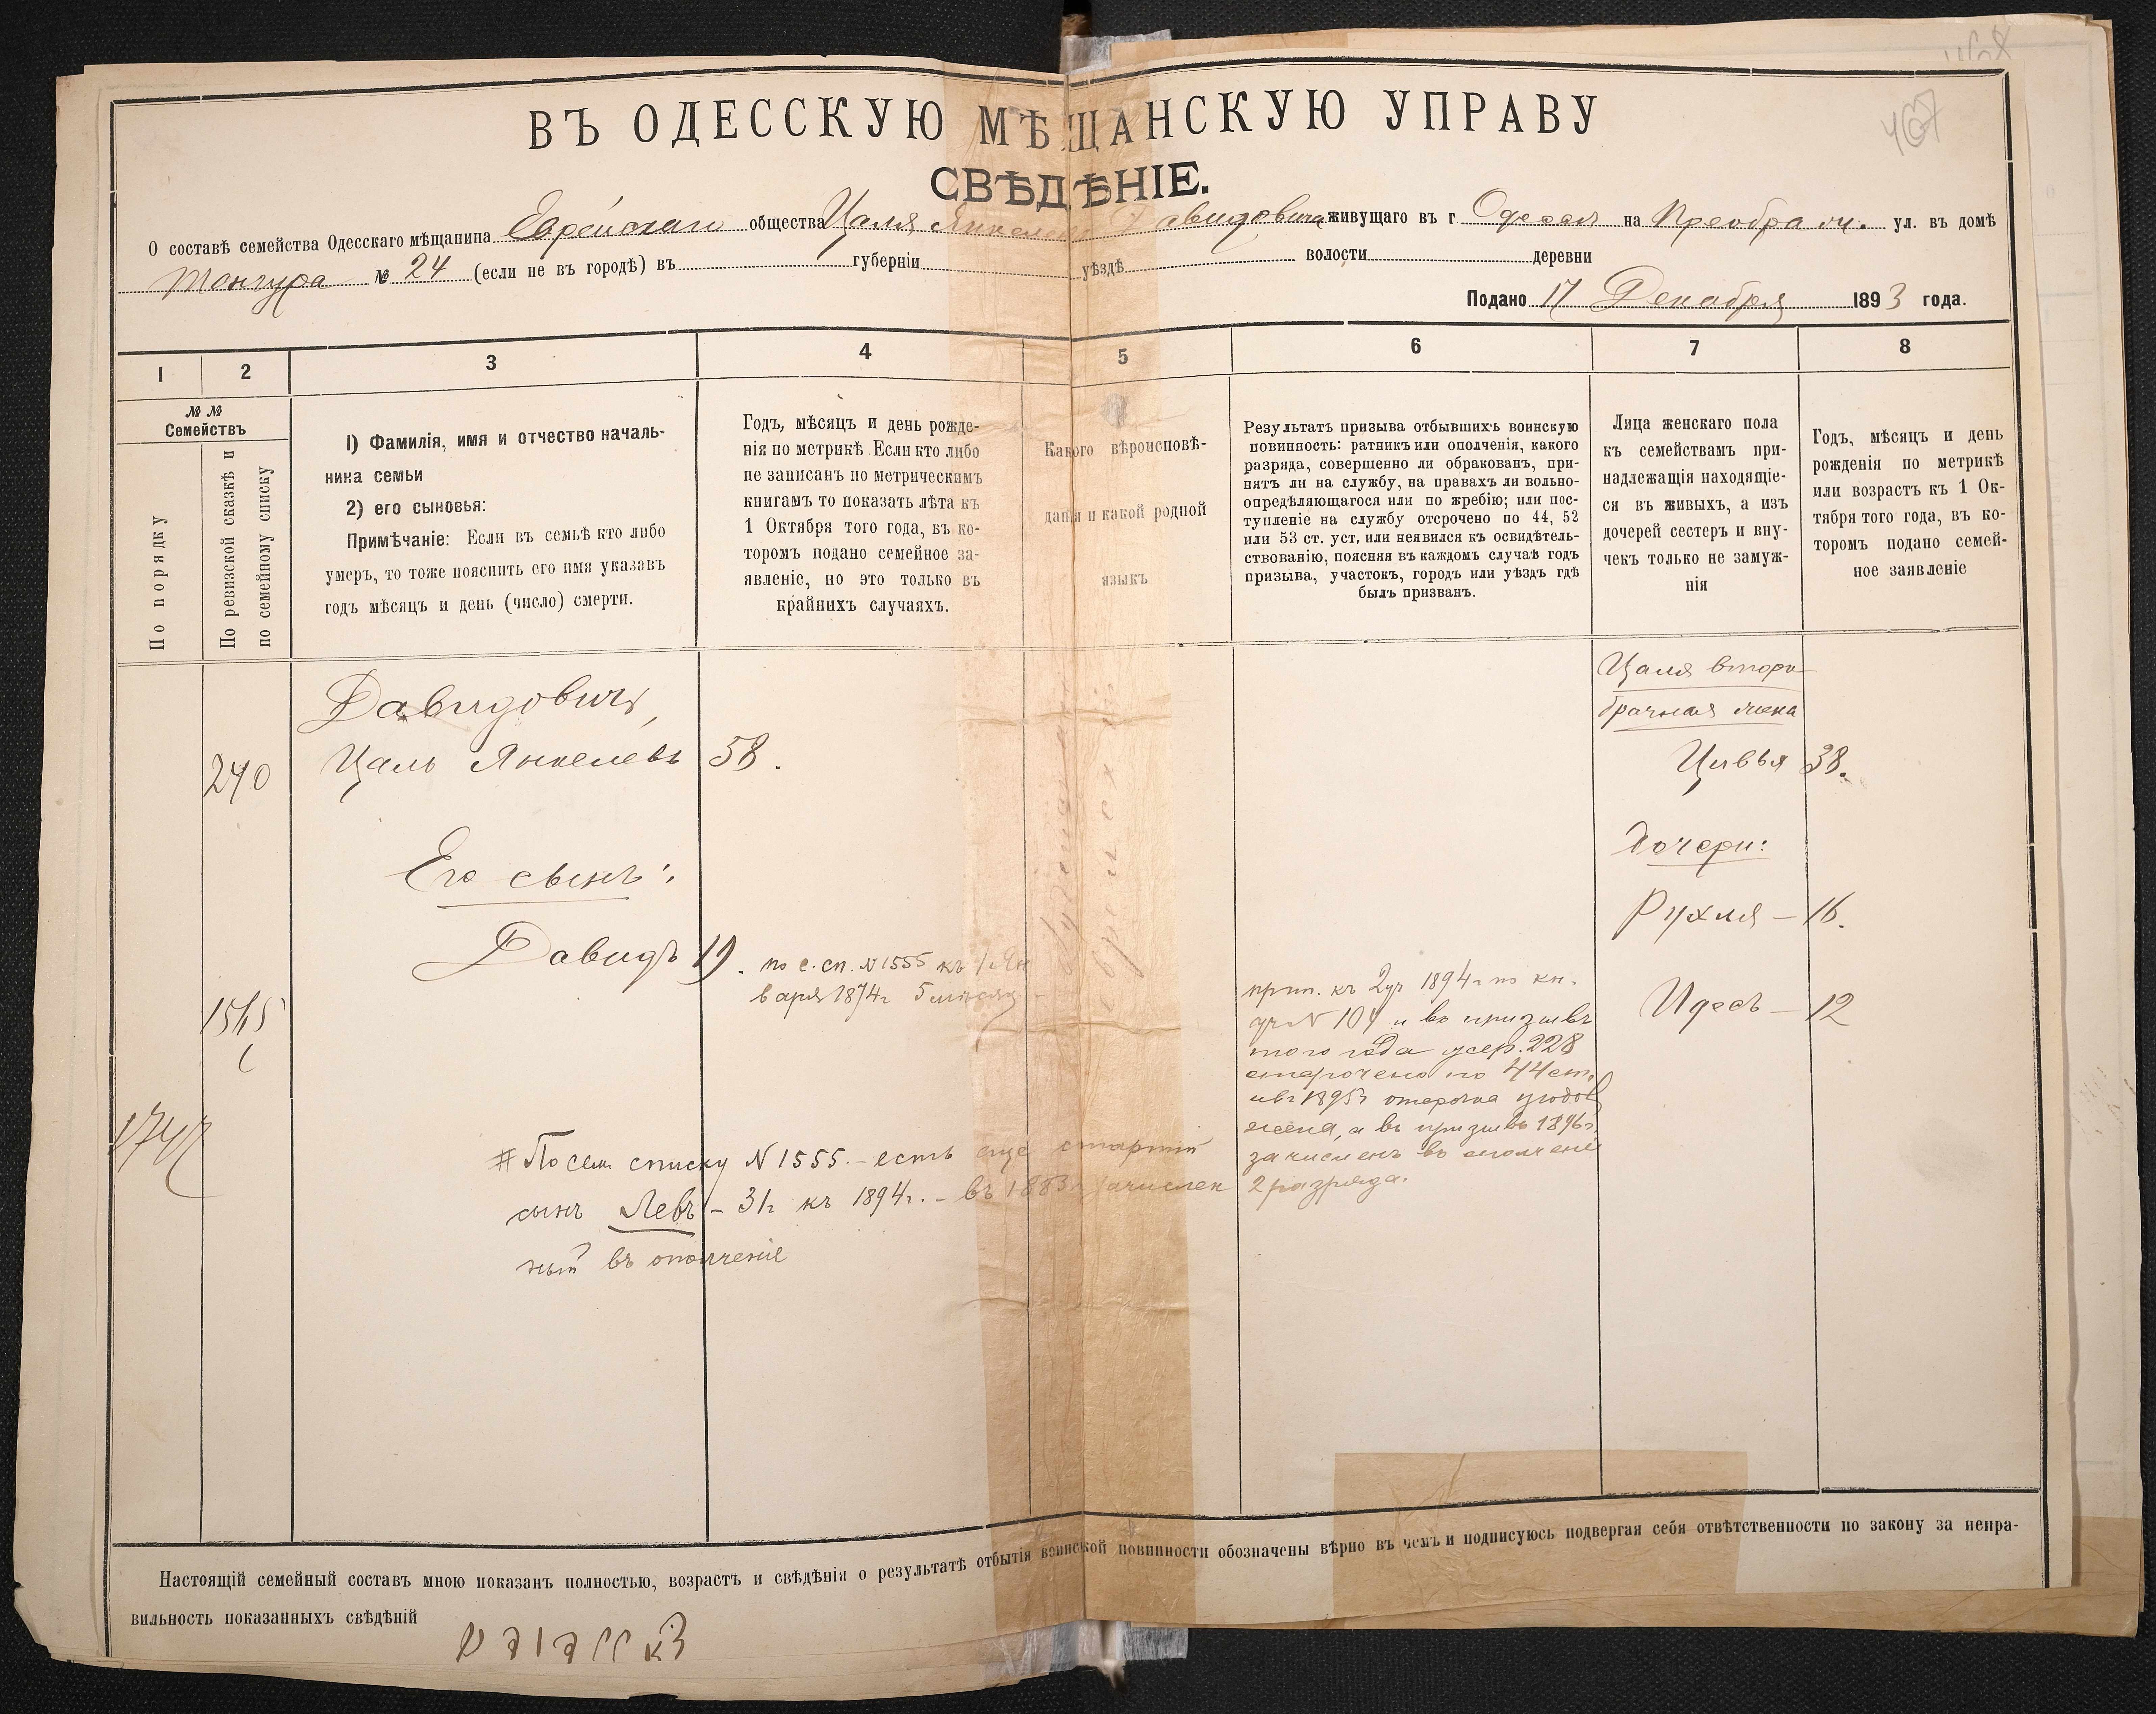 467
ВЪ ОДЕССКУЮ МѢЩАНСКУЮ УПРАВУ
СВѢДѢНІЕ.
О составѣ семейства Одесскаго мѣщанина Еврейскаго общества Цаля Янкелева Давидовича живущаго въ г Одессѣ на Преображ. ул. въ домѣ
№ 24 (если не въ городѣ) въ губерніи уѣздѣ волости деревни
Подано 17 Декабря 1893 года.
1 2 3 4 5 6 7 8
№ №
Семействъ
По порядку
По ревизской сказкѣ и
по семейному списку
1) Фамилія, имя и отчество началь-
ника семьи
2) его сыновья:
Примѣчаніе: Если въ семьѣ кто либо
умеръ, то тоже пояснить его имя указавъ
годъ мѣсяцъ и день (число) смерти.
Годъ, мѣсяцъ и день рожде-
нія по метрикѣ. Если кто либо
не записанъ по метрическимъ
книгамъ то показать лѣта къ
1 Октября того года, въ ко-
торомъ подано семейное за-
явленіе, но это только въ
крайнихъ случаяхъ.
Какого вѣроисповѣ-
данія и какой родной
языкъ
Результатъ призыва отбывшихъ воинскую
повинность: ратникъ или ополченія, какого
разряда, совершенно ли обракованъ, при-
нятъ ли на службу, на правахъ ли вольно-
опредѣляющагося или по жребію; или пос-
тупленіе на службу отсрочено по 44, 52
или 53 ст. уст, или неявился къ освидѣтель-
ствованію, поясняя въ каждомъ случаѣ годъ
призыва, участокъ, городъ или уѣздъ гдѣ
былъ призванъ.
Лица женскаго пола
къ семействамъ при-
надлежащія находящіе-
ся въ живыхъ, а изъ
дочерей сестеръ и вну-
чекъ только не замуж-
нія
Годъ, мѣсяцъ и день
рожденія по метрикѣ
или возрастъ къ 1 Ок-
тября того года, въ ко-
торомъ подано семей-
ное заявленіе
Давидовичъ,
240 Цаль Янкелевъ 58.
Его сынъ:
Давидъ 19. по с. сп. N 1555 къ 1 Ян
варя 1874г 5 мѣсяц.
1747
# По сем. списку N 1555. – есть еще старшій
сынъ Левъ – 31г къ 1894г. – въ 1883г зачислен
ный въ ополченіе
прип. къ 2уч 1894г по кн.
уч N 104 и въ призывъ
того года жер. 228
отсрочено по 44 ст.
въ 1895г отсрочка
жена, а въ призывъ 1896г.
зачисленъ въ ополченіе
2 разряда.
Цаля второ-
брачная жена
Цивья 38.
Дочери:
Рухля – 16.
Идесь – 12
Настоящій семейный составъ мною показанъ полностью, возрастъ и свѣдѣнія о результатѣ отбытія воинской повинности обозначены вѣрно въ чемъ и подписуюсь подвергая себя отвѣтственности по закону за непра-
вильность показанныхъ свѣдѣній